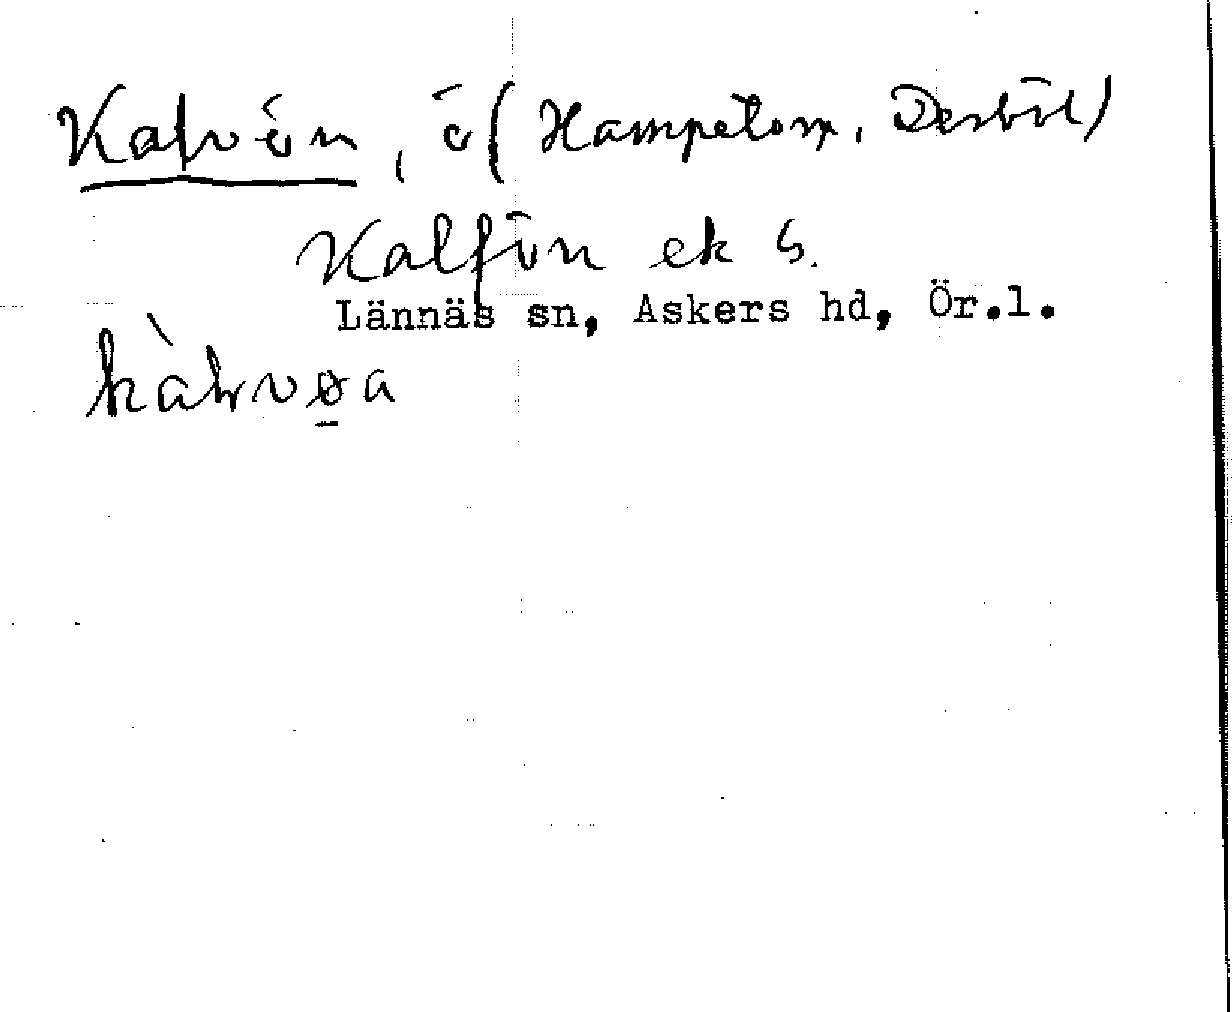 Kalvön, ö (Hampetorp, Derbol)
Kalfön ek S.
Lännäs sn, Askers hd, Ör.l.
kàlvøa